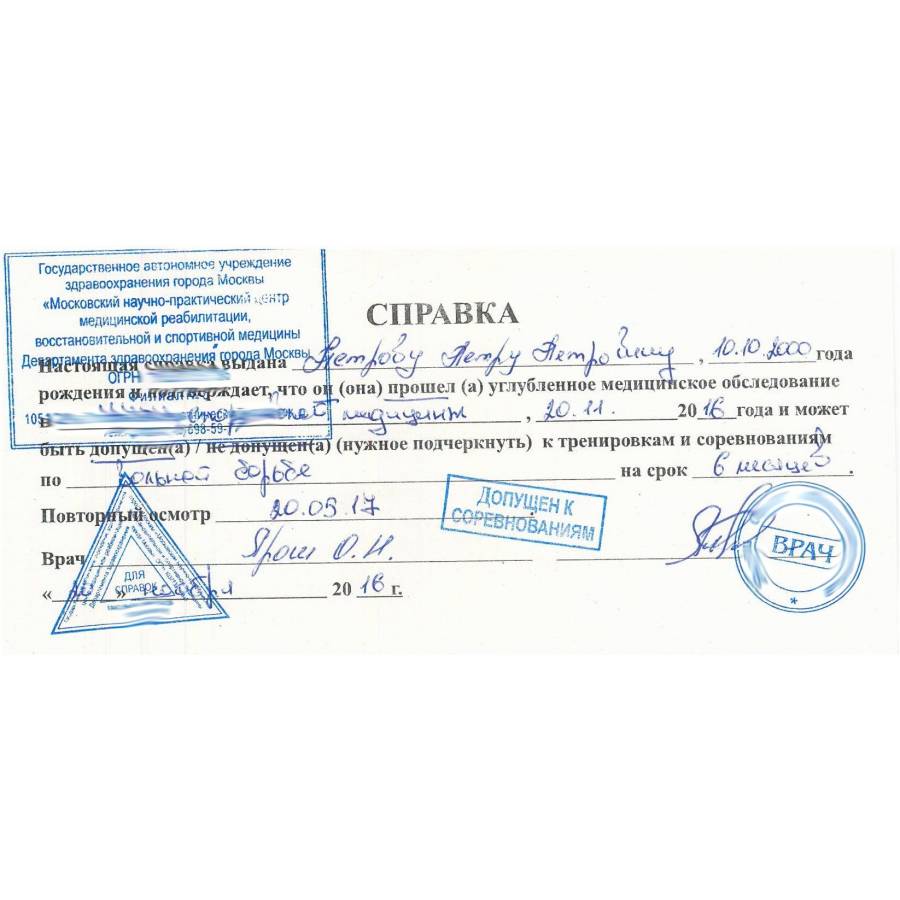 Государственное автономное учреждение
здравоохранения города Москвы
«Московский научно-практический центр
медицинской реабилитации,
восстановительной и спортивной медицины
Департамента здравоохранения города Москвы
ОГРН
Филиал
105
698-59-
СПРАВКА
Настоящая справка выдана Петрову Петру Петровичу, 10.10.2000 года
рождения и подтверждает, что он (она) прошел (а) углубленное медицинское обследование
в медицины, 20.11. 2016 года и может
быть допущен(а) / не допущен(а) (нужное подчеркнуть) к тренировкам и соревнованиям
по вольной борьбе на срок 6 месяцев.
Повторный осмотр 20.05.17
ДОПУЩЕН К
СОРЕВНОВАНИЯМ
Врач Ярош О.Н.
ВРАЧ
ДЛЯ
СПРАВОК
« » ноября 2016 г.